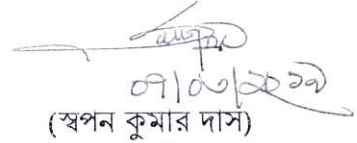 ০৭|০৩|২০১৯
(স্বপন কুমার দাস)